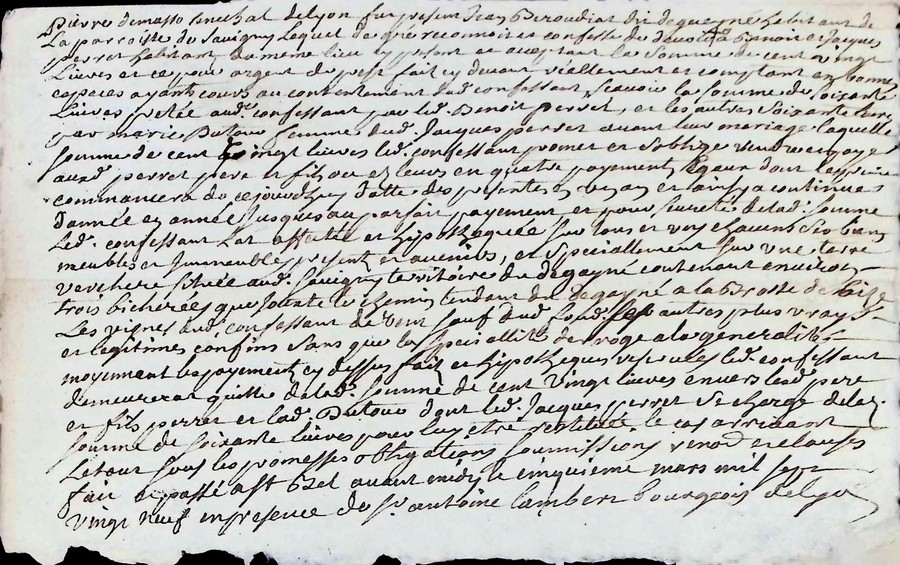 Pierre demasso senechal delyon fut present Jean Beroudiat dit deguemé habitant de
La parroisse de Savigny Lequel de gre reconnoit et confesse de devoir a Benoit et Jacques
perret habitant du meme lieu cy present et acceptant la Somme de cent vingt
Livres et ce pour argent de prest fait cy devant réellement et comptant en bonne
especes ayants cours au contentement dud confessant, scavoir la somme de soixante
Livres pretée aud. confessant par led. Benoit perret, et les autres soixante livres
par marie Dutour femme dud. Jacques perret avant leur mariage laquelle
somme de cent vingt livres led. confessant promet et soblige rendre et payer
auxd perret pere et fils ou es leurs en quatre payements Egaux dont le premier
commencera de cejourdhuy datte des presentes en un an et ainsy a continuer
dannée en année jusques au parfait payement et pour sureté de lad. somme
Led. confessant a affectée et hipothequée tous et un chacuns ses biens
meubles et Jmmeubles presents et avenirs, et specialement sur une terre
verchere scituée aud. Savigny territoire du degayné contenant environ
trois bicherées que jouxte le chemin tendant du degayné a la Brosse de bize
Les vignes dud. confessant de vent sauf dud. Lods ses autres plus vrays
et legitimes confins sans que la specialité deroge a la generalité
moyennant le payement cy dessus fait et hipotheques led. confessant
demeurera quitte de lad. somme de cent vingt livres envers lesd pere
et fils perret et lad. Dutour dont led. Jacques perret se charge de lad.
somme de soixante livres pour luy etre restituée le cas arrivant
Le tout sous les promesses obligations soumissions renon et clauses
fait et passé a St Bel avant midy le cinquieme mars mil sept
vingt neuf en presence de sr antoine Lambert bourgeois delyon